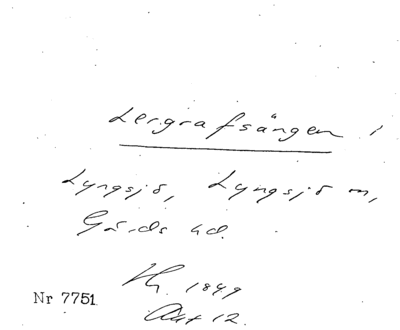 Lergrafsängen
Lyngsjö, Lyngsjö
Gärds hd.
1849
Nr 7751
Akt 12.